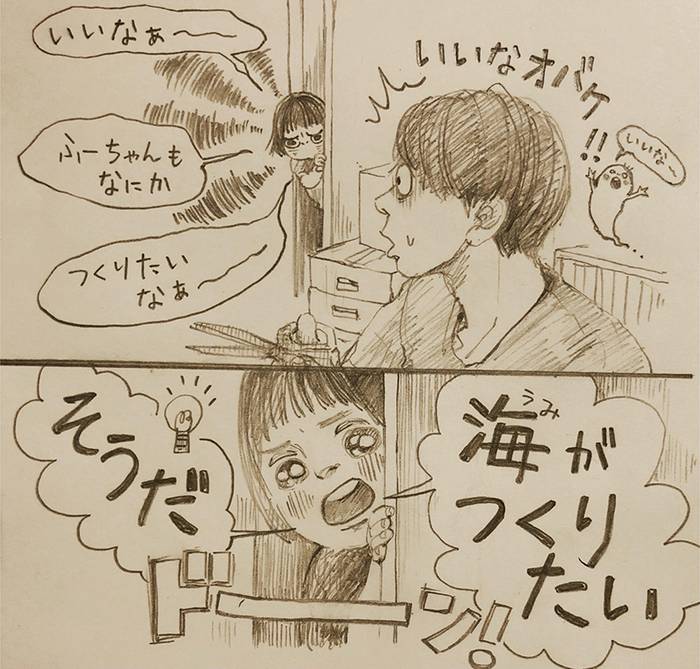 いいなオバケ
!!
いいな〜
いいなぁ〜
ふーちゃんも
なにか
つくりたい
なぁ〜
うみ
海が
つくり
たい
そうだ
ドーン!